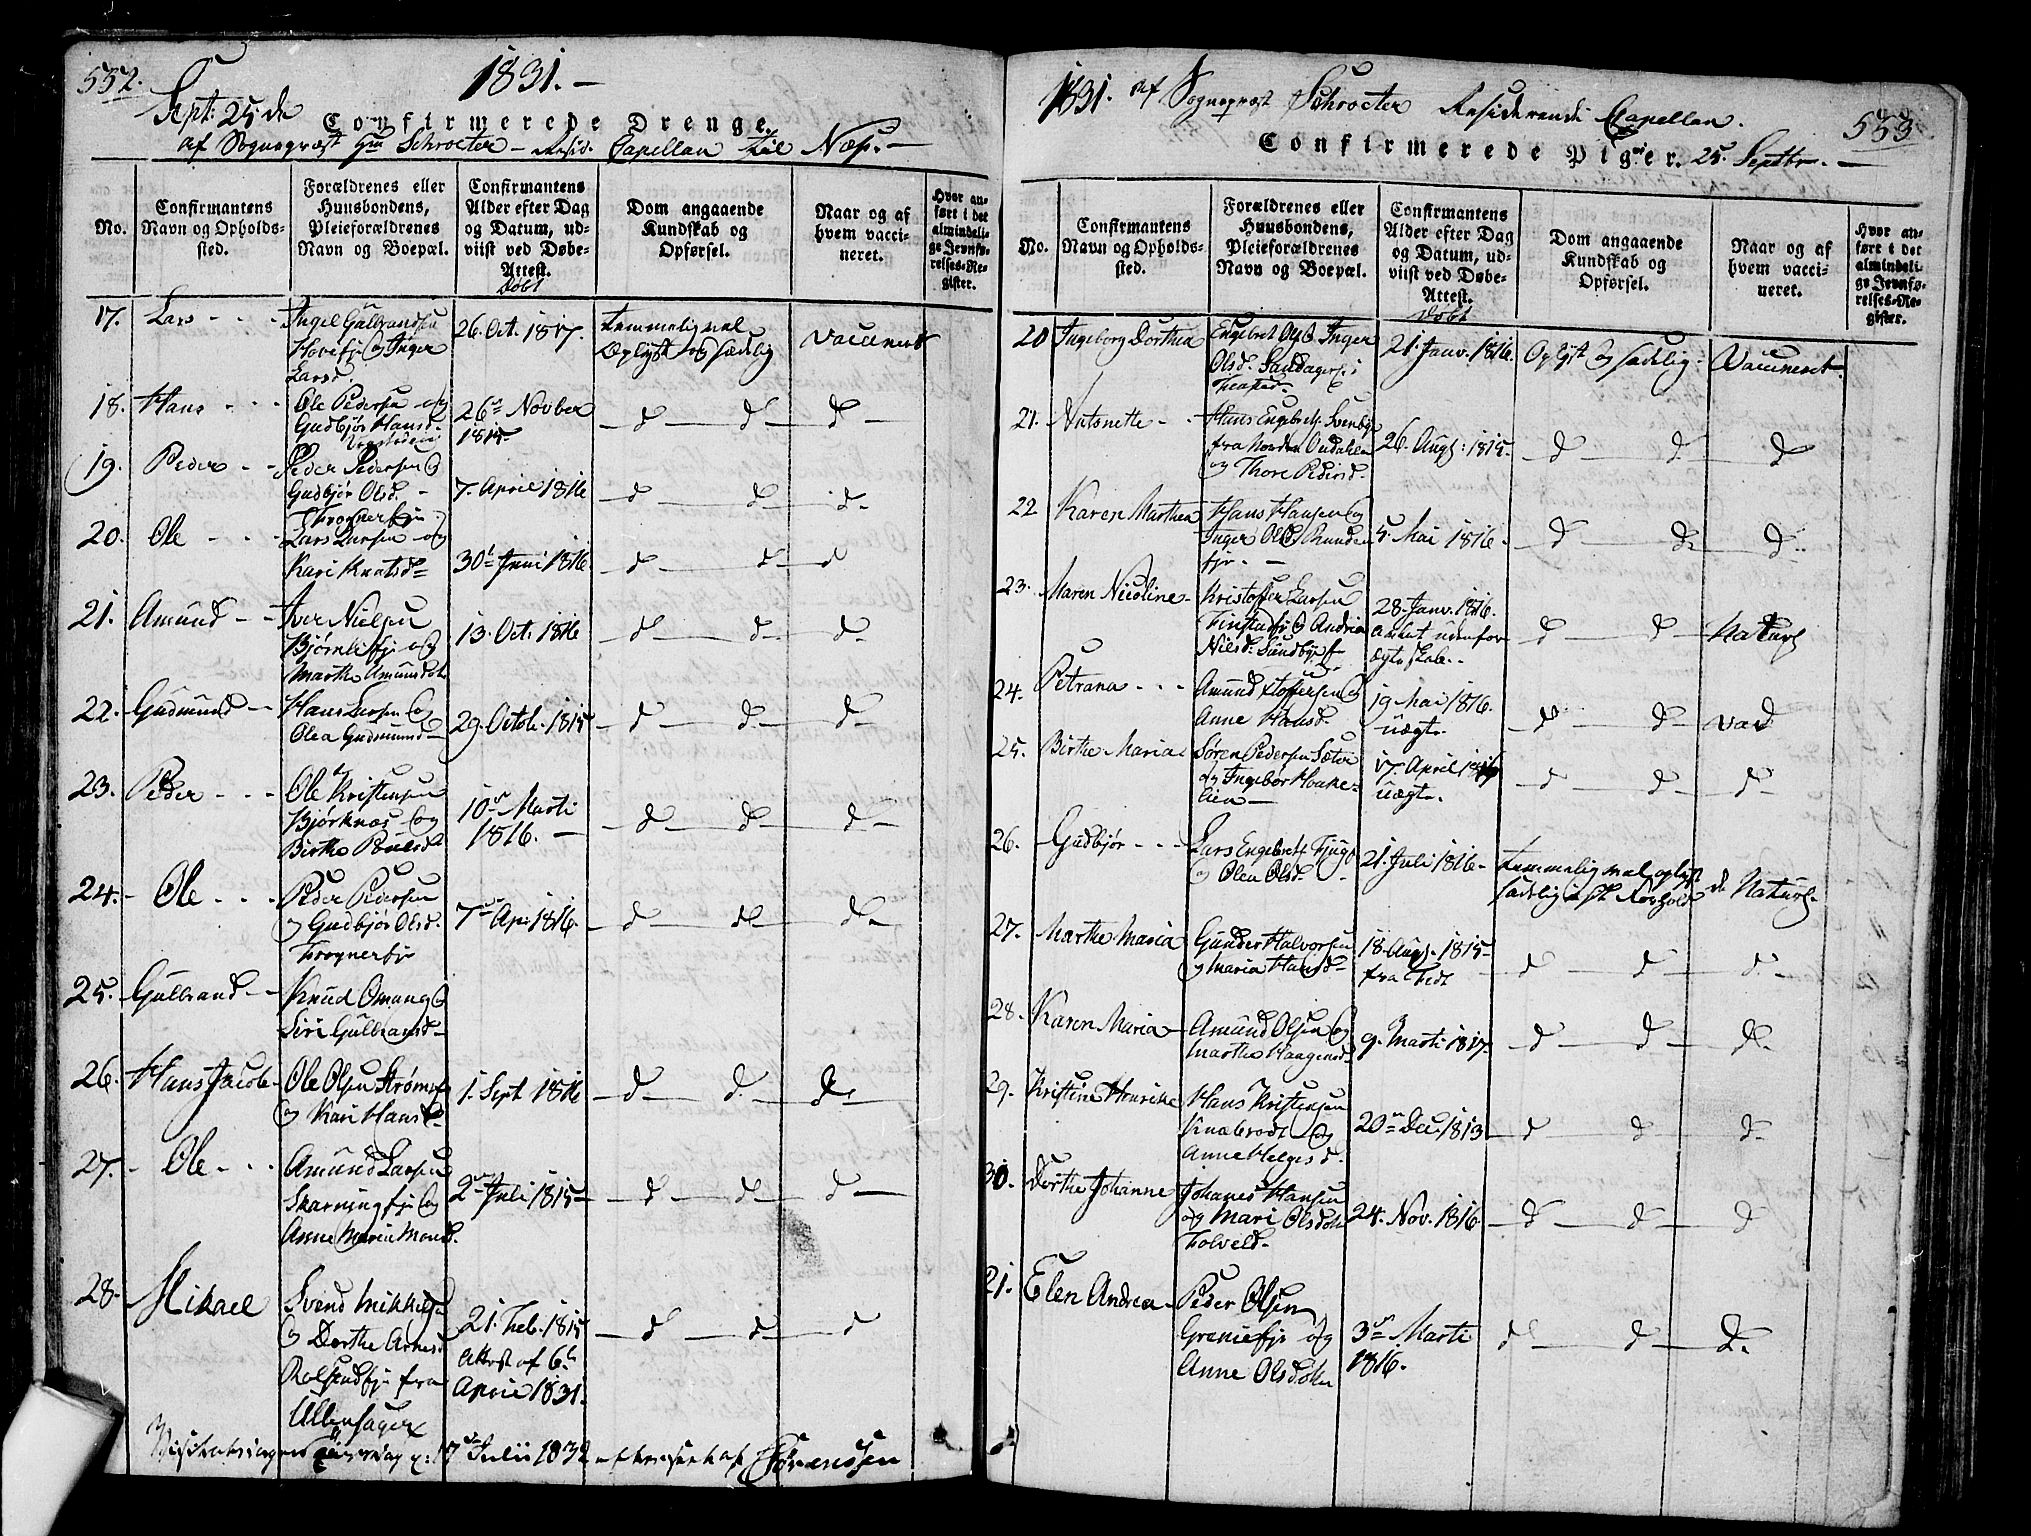 532.
1831.-
Sept: 25 de
Confirmerede Drenge.
af Sognepræst Hr Schroeter - Resid. Capellan til Næs.-
No.
Confirmantens Navn og Opholdssted.
Forældrenes eller Huusbondens, Pleieforældrenes Navn og Boepæl.
Confirmantens Alder efter Dag og Datum, udviist ved Døbe-Attest.
Døbt
Dom angaaende Kundskab og Opførsel.
Naar og af hvem vaccineret.
Hvor anført i det almindelige Jevnførelses-Register.
17. Lars - - -
Ingel Gulbrandsen
Hovefje og Inger
Larsd.
26. Oct. 1817.
temmelig vel
Oplyst og sædelig
Vaccineret
18. Hans - - -
Ole Pedersen og
Gudbjør Hansd.
26de Novber
1815.
d d d
19. Peder - -
Peder Pedersen og
Gudbjør Olsd. -
Frognerfje
7. April 1816
d d d
20. Ole - - -
Lars Larsen og
Kari Knutsd
30t Juni 1816.
d d d
21. Amund - -
Iver Nielsen
Bjørnlifje og
Marthe Amundsdtr
13. Oct. 1816
d d d
22. Gudmund -
Hans Larsen og
Olea Gudmund
29. Octob. 1815
d d d
23. Peder - - -
Ole Kristensen
Bjørknæs og
Birthe Poulsd
10de Marti
1816.
d d d
24. - Ole - - -
Peder Pedersen
og Gudbjør Olsd.
Frognerfje
7de Ap. 1816.
d d d
25. Gulbrand - -
Knud Omang og
Siri Gulbransd
26. Hans Jacob
Ole Olsen Strøms
og Kari Hansd
1. Sept 1816
d d d
27. - Ole - - -
Amund Larsen
Skarningfje og
Anne Maria Monsd.
2den Juli 1815
d d d
28. Mikael
Svend Mikkels
og Dorthe Arnesd
Rolsrudfje fra
Ullensager
21. Feb. 1815
Attest af 6te
April 1831.
d d d
17de Julii 1832
Sørenssen
1831. af Sognepræst Schroeter Residerende Capellan.
533
Confirmerede Piger. 25. Septbr. -
No.
Confirmantens Navn og Opholdssted.
Forældrenes eller Huusbondens, Pleieforældrenes Navn og Boepæl.
Confirmantens Alder efter Dag og Datum, udviist ved Døbe-Attest.
Døbt
Dom angaaende Kundskab og Opførsel.
Naar og af hvem vaccineret.
Hvor anført i det almindelige Jevnførelses-Register.
20 Ingeborg Dorthea
Engebret Ols. Inger
Olsd. Sandager i
21. Janv. 1816.
Oplyst og sædelig
Vaccineret.
21. Antonette - -
Hans Engebrets. Svenby
fra Nordre Oudalen
og Thore Pedersd.
26. Augs: 1815.
d d d
22 Karen Marthea
Hans Hansen og
Inger Olsd Runden
fje. -
5. Mai 1816.
d d d
23. Maren Nicoline -
Kristoffer Larsen
Finstadfje og Andrea
Nilsd. Sundbyef
28. Janv. 1816.
avlet udenfor
Ægteskab.
d d Naturl
24. Petrana - - -
Amund Stoffersen og
Anne Hansd.
19 Mai 1816.
uægte.
d d Vac
25. Birthe Maria
Søren Pedersen Sæter
og Ingebor Haake-
lien -
17. April 1816
uægte.
d d d
26. Gudbjør - - -
Lars Engebrets. Fjuge
og Olea Olsd.
21. Juli 1816.
temmelig vel oplyst
sædelig i sit Forhold
d Naturl.
27. Marthe Maria
Gunder Halvorsen
og Maria Hansd
18. Augs. 1815
fra Fedt
d d d
28. Karen Maria
Amund Olsen og
Marthe Haagensd
9. Marti 1817.
d d d
29. Kristine Henrike
Hans Kristensen
Knabrodt og
Anne Helgesd.
20de Dec. 1813
d d d
30. Dorthe Johanne
Johanes Hansen
og Mari Olsdotr
Folveld.
24. Nov. 1816.
d d d
21. Elen Andrea -
Peder Olsen
Graniefje og
Anne Olsdoter
3de Marti
1816.
d d d